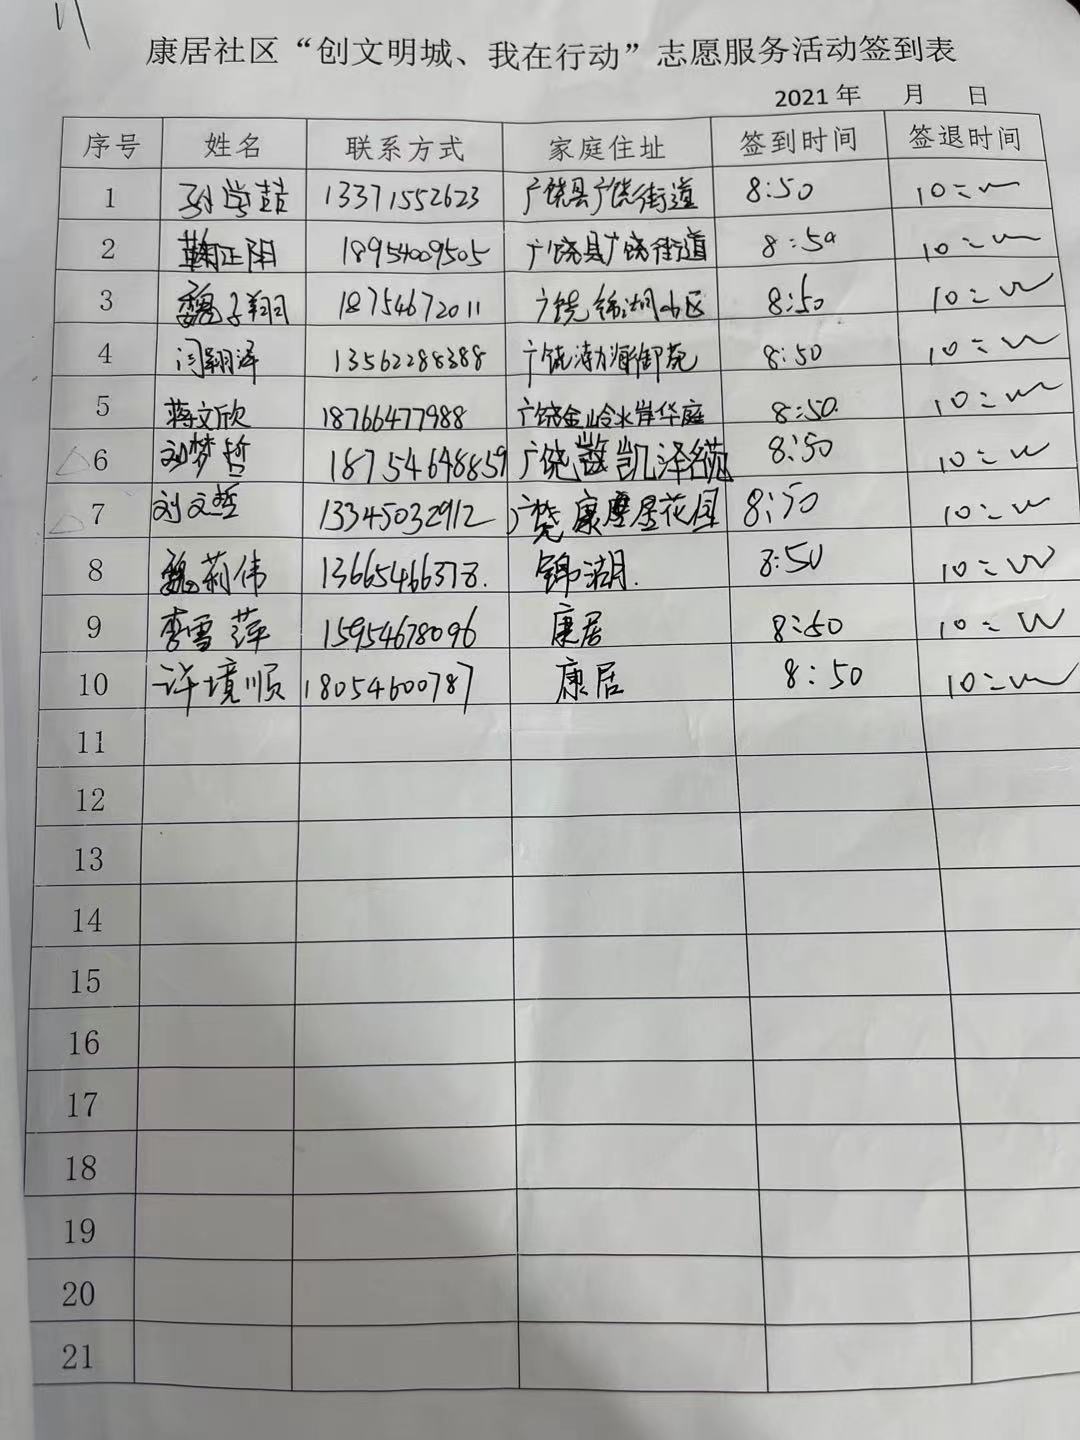 康居社区“创文明城、我在行动”志愿服务活动签到表
2021年 月 日
序号 姓名 联系方式 家庭住址 签到时间 签退时间
1 13371552623 广饶县广饶街道 8:50 10:00
2 鞠正阳 18954009505 广饶县广饶街道 8:50 10:00
3 魏子翔 18754672011 广饶锦湖小区 8:50 10:00
4 闫翔泽 13562288388 广饶渤海御苑 8:50 10:00
5 蒋文欣 18766477988 广饶金岭水岸华庭 8:50 10:00
6 刘梦哲 18754648859 广饶 凯泽名苑 8:50 10:00
7 刘文哲 13345032912 广饶 康居花园 8:50 10:00
8 魏莉伟 13665466378. 锦湖. 8:50 10:00
9 李雪萍 15954678096 康居 8:50 10:00
10 许境顺 18054600787 康居 8:50 10:00
11
12
13
14
15
16
17
18
19
20
21